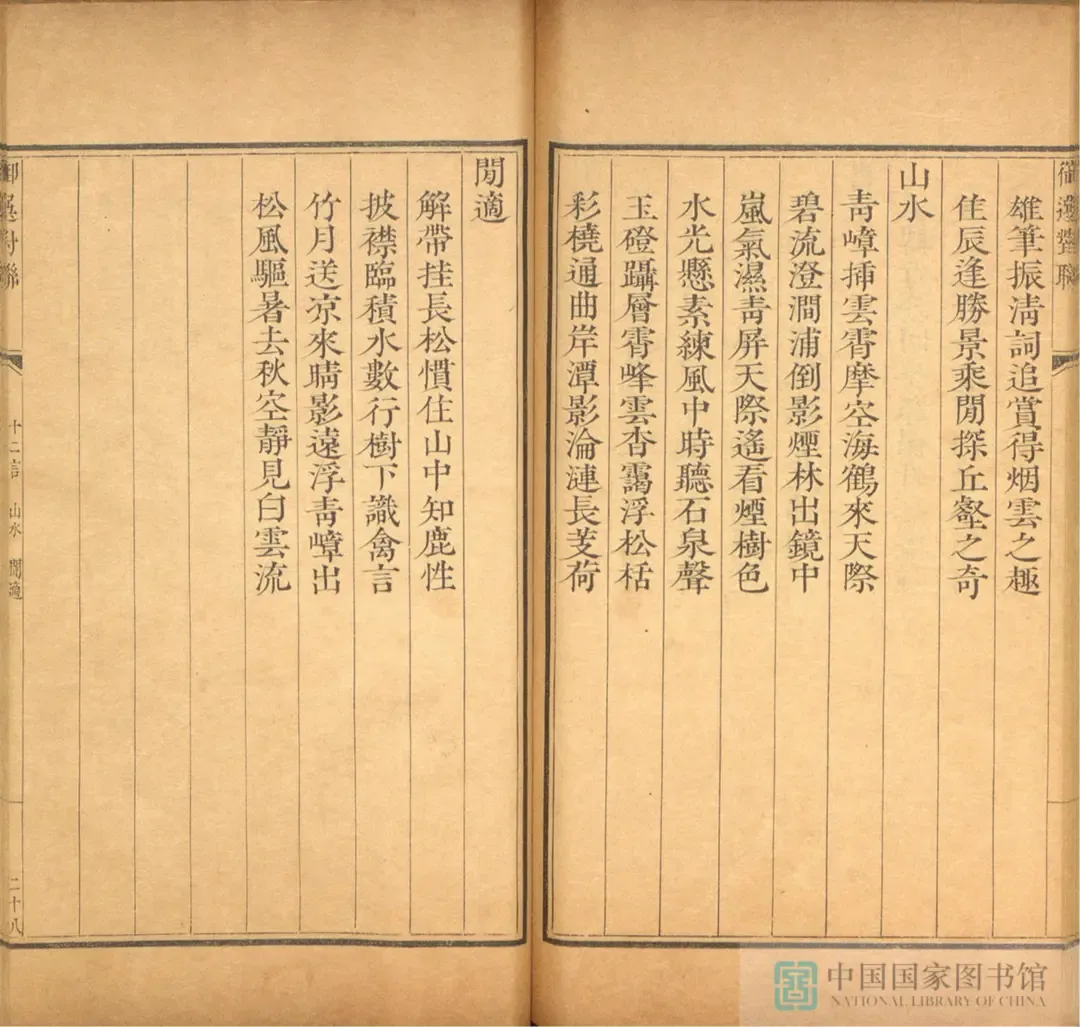 雄筆振清詞追賞得烟雲之趣
佳辰逢勝景乘閒探丘壑之奇
山水
青嶂揷雲霄摩空海鶴來天際
碧流澄澗浦倒影煙林出鏡中
嵐氣濕青屏天際遙看煙樹色
水光懸素練風中時聽石泉聲
玉磴躡層霄峰雲杳靄浮松栝
彩橈通曲岸潭影淪漣長芰荷
閒適
解帶挂長松慣住山中知鹿性
披襟臨積水數行樹下識禽言
竹月送凉來晴影遠浮青嶂出
松風驅暑去秋空靜見白雲流
對聯
十二言
山水
閒適
二十八
中国国家图书馆
NATIONAL LIBRARY OF CHINA